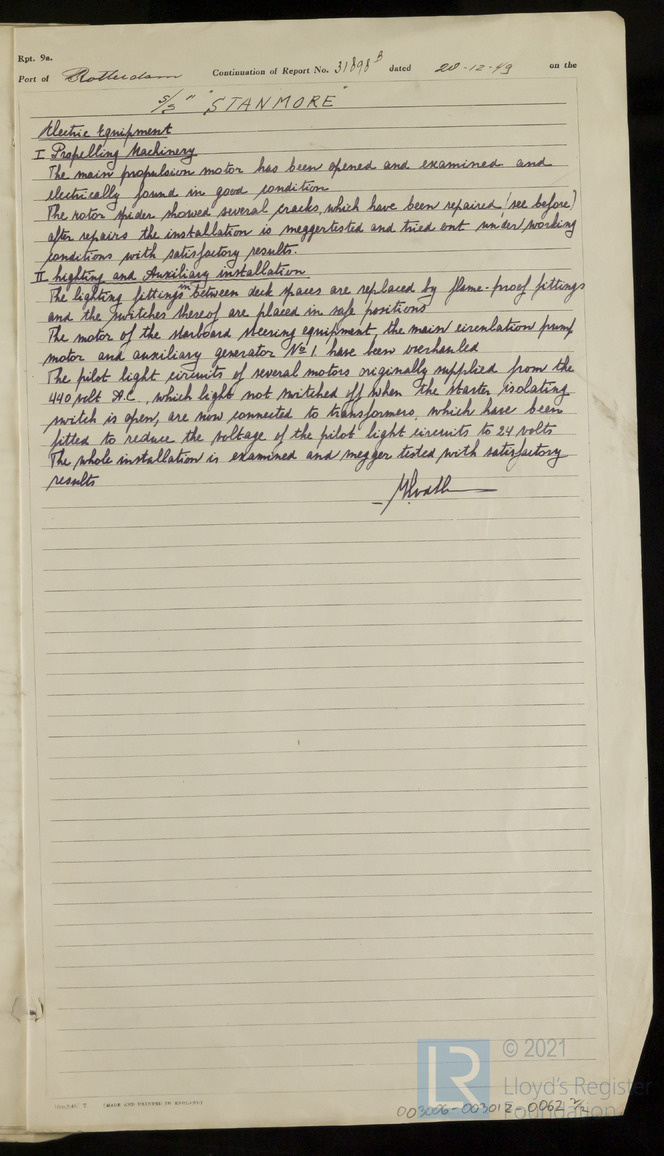 Rpt. 9a.
Port of Rotterdam Continuation of Report No. 31898 B dated 20-12-49 on the
S/S "STANMORE"
Electric Equipment
I Propelling Machinery
The main propulsion motor has been opened and examined and
electrically found in good condition
The rotor spider showed several cracks, which have been repaired (see before)
after repairs the installation is meggertested and tried out under working
conditions with satisfactory results.
II Lighting and Auxiliary installation
The lighting fittings in between deck spaces are replaced by flame-proof fittings
and the switches thereof are placed in safe positions
The motor of the starboard steering equipment, the main circulation pump
motor and auxiliary generator No 1 have been overhauled
The pilot light circuits of several motors originally supplied from the
440 volt A.C., which light not switched off when the starter isolating
switch is open, are now connected to transformers, which have been
fitted to reduce the voltage of the pilot light circuits to 24 volts
The whole installation is examined and megger tested with satisfactory
results
(MADE AND PRINTED IN ENGLAND)
© 2021
Lloyd's Register
Foundation
003006-003012-0062 2/2